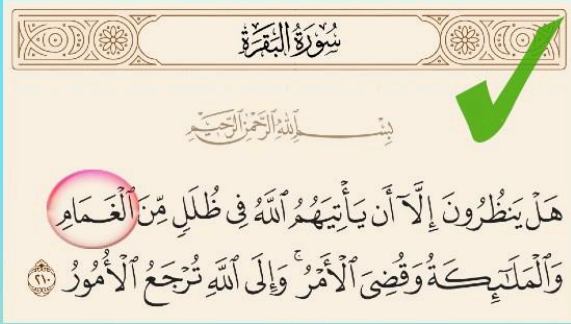 سُورَةُ الْبَقَرَةِ
بِسْمِ اللَّهِ الرَّحْمَٰنِ الرَّحِيمِ
هَلْ يَنظُرُونَ إِلَّآ أَن يَأْتِيَهُمُ ٱللَّهُ فِى ظُلَلٍ مِّنَ ٱلْغَمَامِ
وَٱلْمَلَٰٓئِكَةُ وَقُضِىَ ٱلْأَمْرُ ۚ وَإِلَى ٱللَّهِ تُرْجَعُ ٱلْأُمُورُ ٢١٠